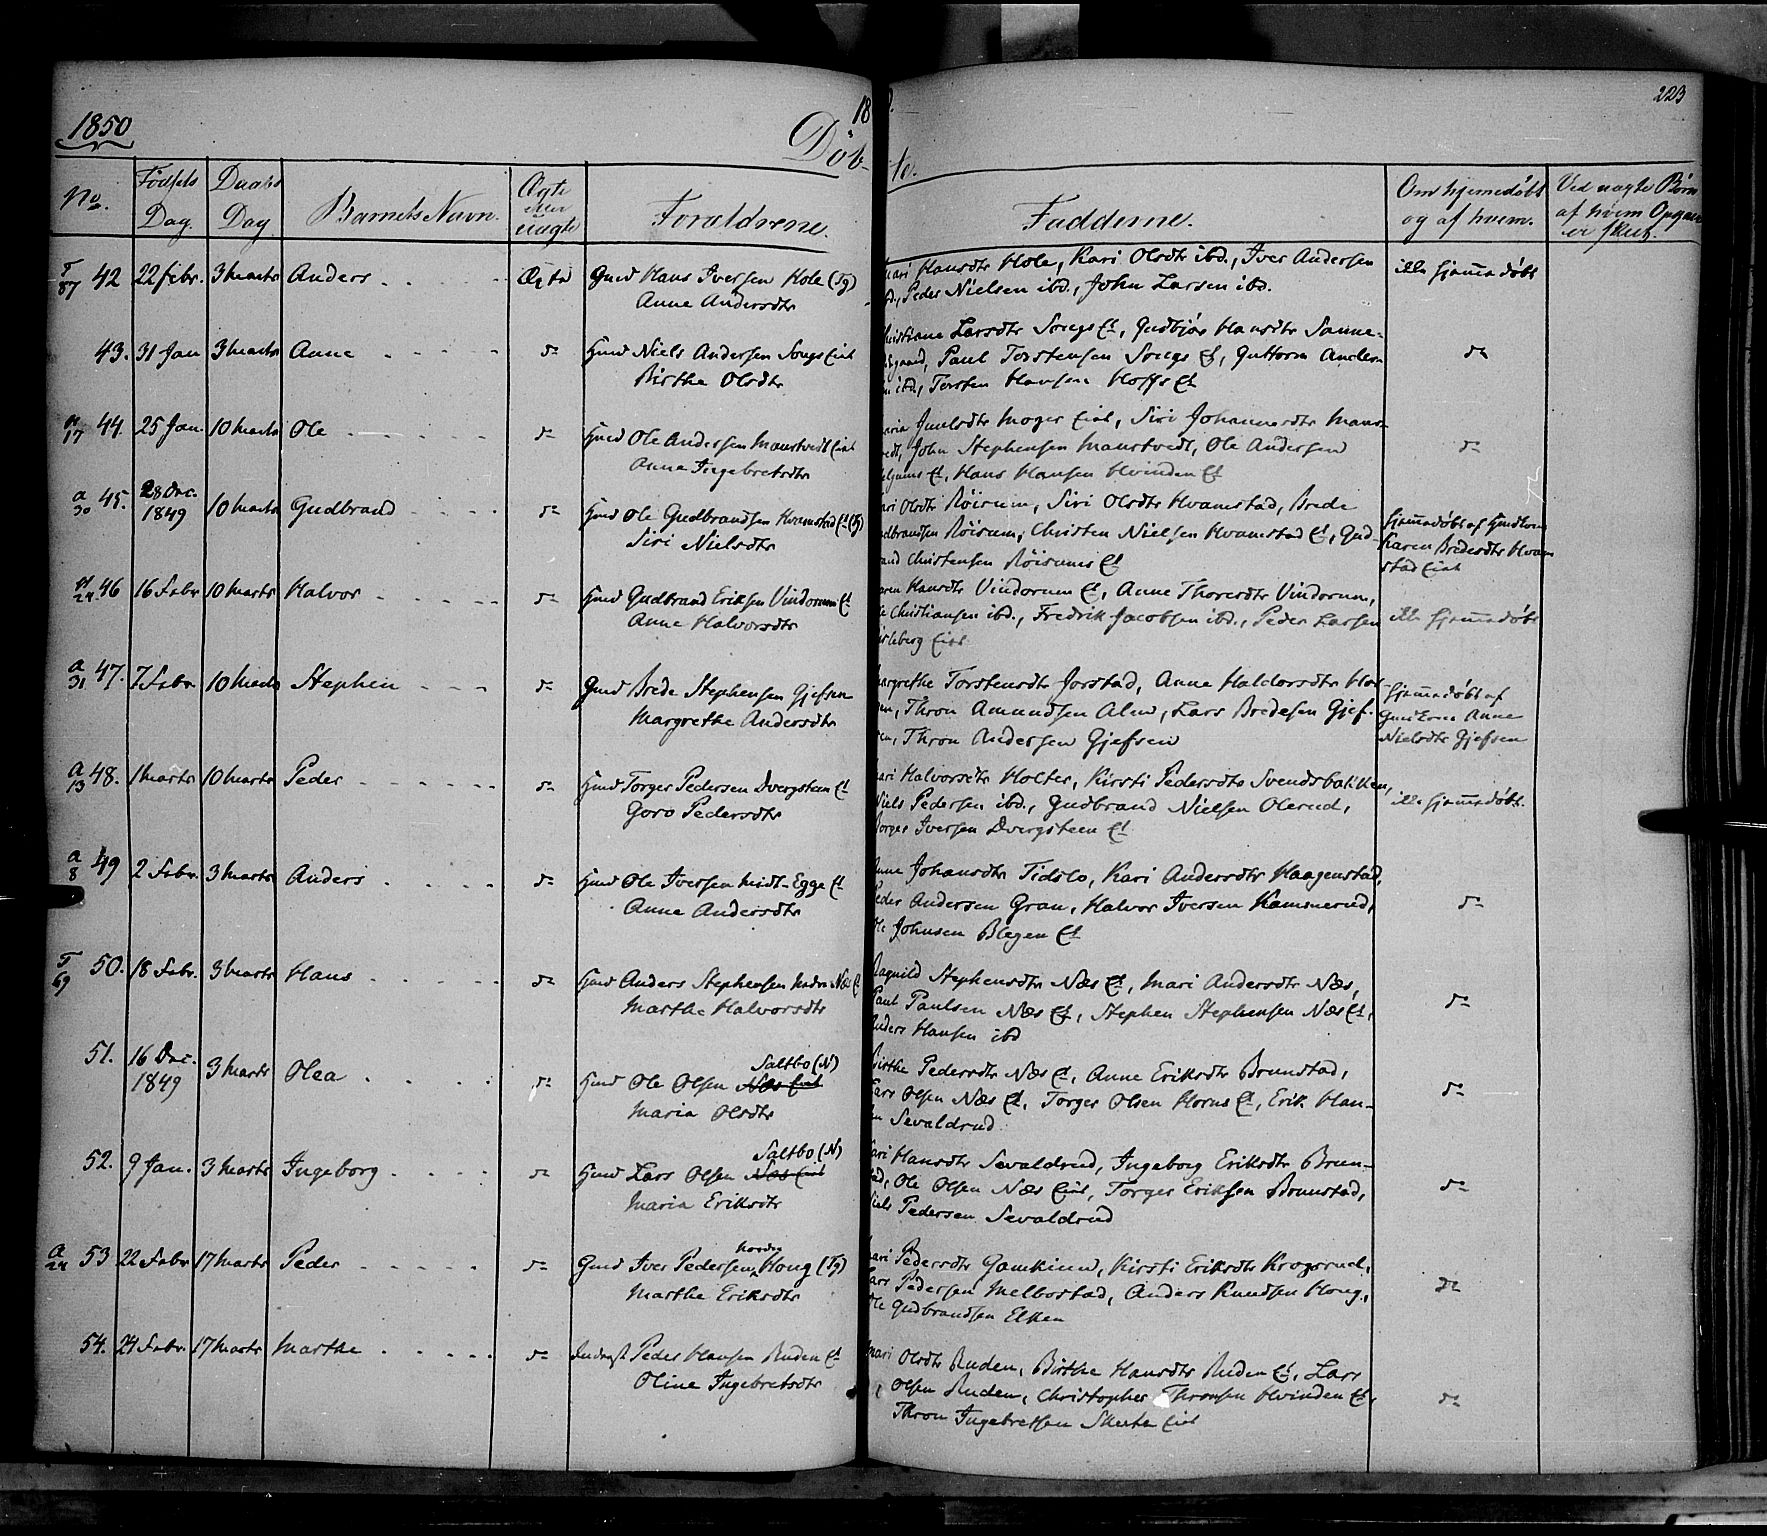 1850
18
Døb-
te.
223
No.
Fødsels Dag.
Daabs Dag
Barnets Navn.
Ægte eller uægte
Forældrene.
Fadderne.
Om hjemedøbt og af hvem.
Ved uægte Børn af hvem Opgaven er skeet.
T 87 42 22 febr. 3 Marts Anders Ægte Gmd Hans Iversen Hole (Tg)
Anne Andersdtr
Hansdtr Hole, Kari Olsdtr ibd., Iver Andersen
Peder Nielsen ibd., John Larsen ibd.
ikke hjemmedøbt
43. 31 Jan 3 Marts Anne do Hmd Niels Andersen Sougs Eiet
Birthe Olsdtr
Larsdtr Sougs Et, Gudbjør Hansdtr Sanne-
gaard, Paul Torstensen Sougs Et, Guttorm Anders-
ibd., Torsten Hansen Hoffs Et
do
17 44. 25 Jan. 10 Marts Ole do Hmd Ole Andersen Maurtvedt Eiet
Anne Ingebretsdtr
Moger Eiet, Siri Johannesdtr Maur-
John Stephensen Maurtvedt, Ole Andersen
Et, Hans Hansen Hvinden Et
do
a 30 45. 28 Dec. 1849 10 Marts Gudbrand do Hmd Ole Gudbrandsen Hvamstad Et (Tg)
Siri Nielsdtr
Olsdtr Røisum, Siri Olsdtr Hvamstad, Brede
Røisum, Christen Nielsen Hvamstad Et, Gud-
Christensen Røisums Et
Hjemmedøbt af
Karen Bredesdtr Hvam
stad Eiet
24 46 16 Febr 10 Marts Halvor do Hmd Gudbrand Eriksen Vindorum Et
Anne Halvorsdtr
Hansdtr Vindorum Et, Anne Thoresdtr Vindorum,
Christiansen ibd., Fredrik Jacobsen ibd., Peder Larsen
Eiet
ikke hjemmedøbt
a 31 47. 7 Febr 10 Marts Stephen do Gmd Brede Stephensen Gjefsen
Margrethe Andersdtr
Torstensdtr Jorstad, Anne Haldorsdtr
Thron Amundsen Alm, Lars Bredesen Gjef-
Thron Andersen Gjefsen
Hjemmedøbt af
Anne
Nielsdtr Gjefsen
a 13 48. 1 Marts 10 Marts Peder do Hmd Torger Pedersen Dvergsteen Et
Goro Pedersdtr
Halvorsdtr Holter, Kirsti Pedersdtr Svendsbakken,
Niels Pedersen ibd., Gudbrand Nielsen Olerud,
Iversen Dvergsteen Et
ikke hjemmedøbt
a 8 49 2 Febr. 3 Marts Anders do Hmd Ole Iversen Midt-Egge Et
Anne Andersdtr
Johansdtr Tidslo, Kari Andersdtr Haagenstad,
Peder Andersen Gran, Halvor Iversen Kammerud,
Johnsen Blegen Et
do
T 69 50. 18 Febr. 3 Marts Hans do Hmd Anders Stephensen Nedre Næs Et
Marthe Halvorsdtr
Ragnild Stephensdtr Næs Et, Mari Andersdtr Næs,
Paul Paulsen Næs Et, Stephen Stephensen Næs Et,
Anders Hansen ibd
do
51. 16 Dec. 1849 3 Marts Olea do Saltbo (N)
Hmd Ole Olsen Næs Eiet
Maria Olsdtr
Birthe Pedersdtr Næs Et, Anne Eriksdtr Brunstad,
Lars Olsen Næs Et, Torger Olsen Horns Et, Erik Han-
Sevaldrud
do
52. 9 Jan. 3 Marts Ingeborg do Saltbo (N)
Hmd Lars Olsen Næs Eiet
Maria Eriksdtr
Hansdtr Sevaldrud, Ingeborg Eriksdtr Brun-
Ole Olsen Næs Eiet, Torger Eriksen Brunstad,
Niels Pedersen Sevaldrud
do
a 24 53 22 Febr 17 Marts Peder do Nordre
Gmd Iver Pedersen Houg (Tg)
Marthe Eriksdtr
Pedersdtr Gamkinn, Kirsti Eriksdtr Krogsrud,
Lars Pedersen Melbostad, Anders Knudsen Houg,
Ole Gudbrandsen Elken
do
54. 24 Febr. 17 Marts Marthe do Inderst Peder Hansen Ruden Et
Oline Ingebretsdtr
Mari Olsdtr Ruden, Birthe Hansdtr Ruden Et, Lars
Olsen Ruden, Christopher Thronsen Hvinden Et,
Thron Ingebretsen Skute Eiet
do